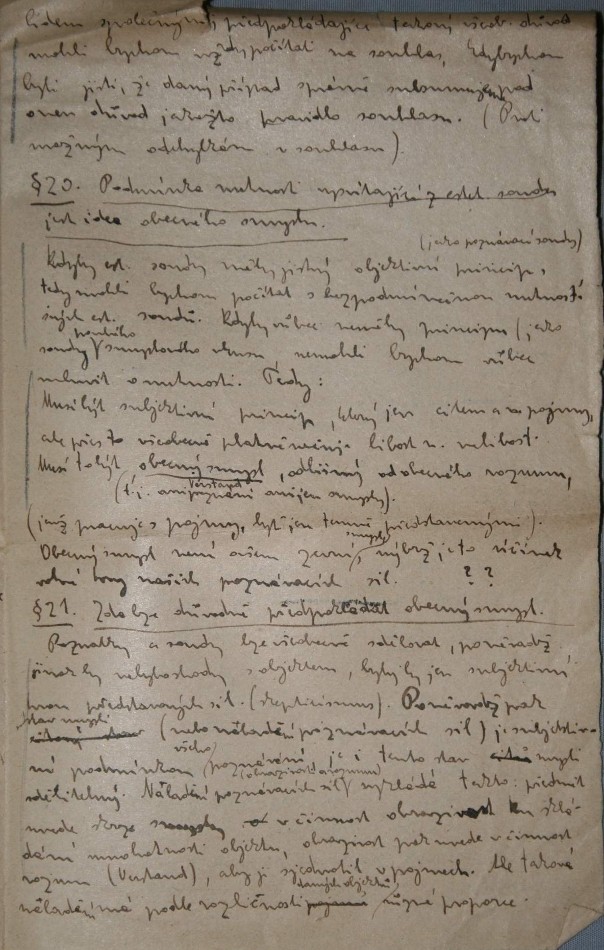 lidem společným, předpokládajíce takový všeob. důvod
mohli bychom vždy počítati na souhlas, kdybychom
byli jisti, že daný případ správně subsumujem pod
onen důvod jakožto pravidlo souhlasu. (Proti
možným odchylkám v souhlasu).
§20. Podmínka nutnosti vyvstávající z estet. soudu
jest idea obecného smyslu.
(jako poznávací soudy)
Kdyby est. soudy měly jistý objektivní princip,
tedy mohli bychom počítat s bezpodmínečnou nutností
svých est. soudů. Kdyby vůbec neměly principu (jako
soudy pouhého smyslového vkusu, nemohli bychom vůbec
mluvit o nutnosti. Tedy:
Musí být subjektivní princip, který jen citem a ne pojmy,
ale přes to všeobecně platně určuje libost n. nelibost.
Musí to být obecný smysl, odlišný od obecného rozumu,
(t.j. ani poznání ani jen smysly).
Verstand
(jenž pracuje s pojmy, byť jen temně představenými).
Obecný smysl není ovšem zevní smysl, nýbrž je to účinek
volné hry našich poznávacích sil. ? ?
§21. Zda lze důvodně předpokládat obecný smysl.
Poznatky a soudy lze všeobecně sdělovat, poněvadž
jinak by nebylo shody s objektem, byly by jen subjektivní
hrou představivých sil. (skepticismus). Poněvadž pak
stav mysli (nebo náladění poznávacích sil) je subjektiv-
ní podmínkou všeho poznávání, je i tento stav mysli
sdělitelný. Náladění poznávacích sil (obrazivost a rozumu) vykládá takto: předmět
uvede skrze smysly v činnost obrazivost ku sklá-
dání mnohotnosti objektu, obrazivost pak uvede v činnost
rozum (Verstand), aby ji sjednotil v pojmech. Ale takové
náladění má podle rozličnosti daných objektů různé proporce.